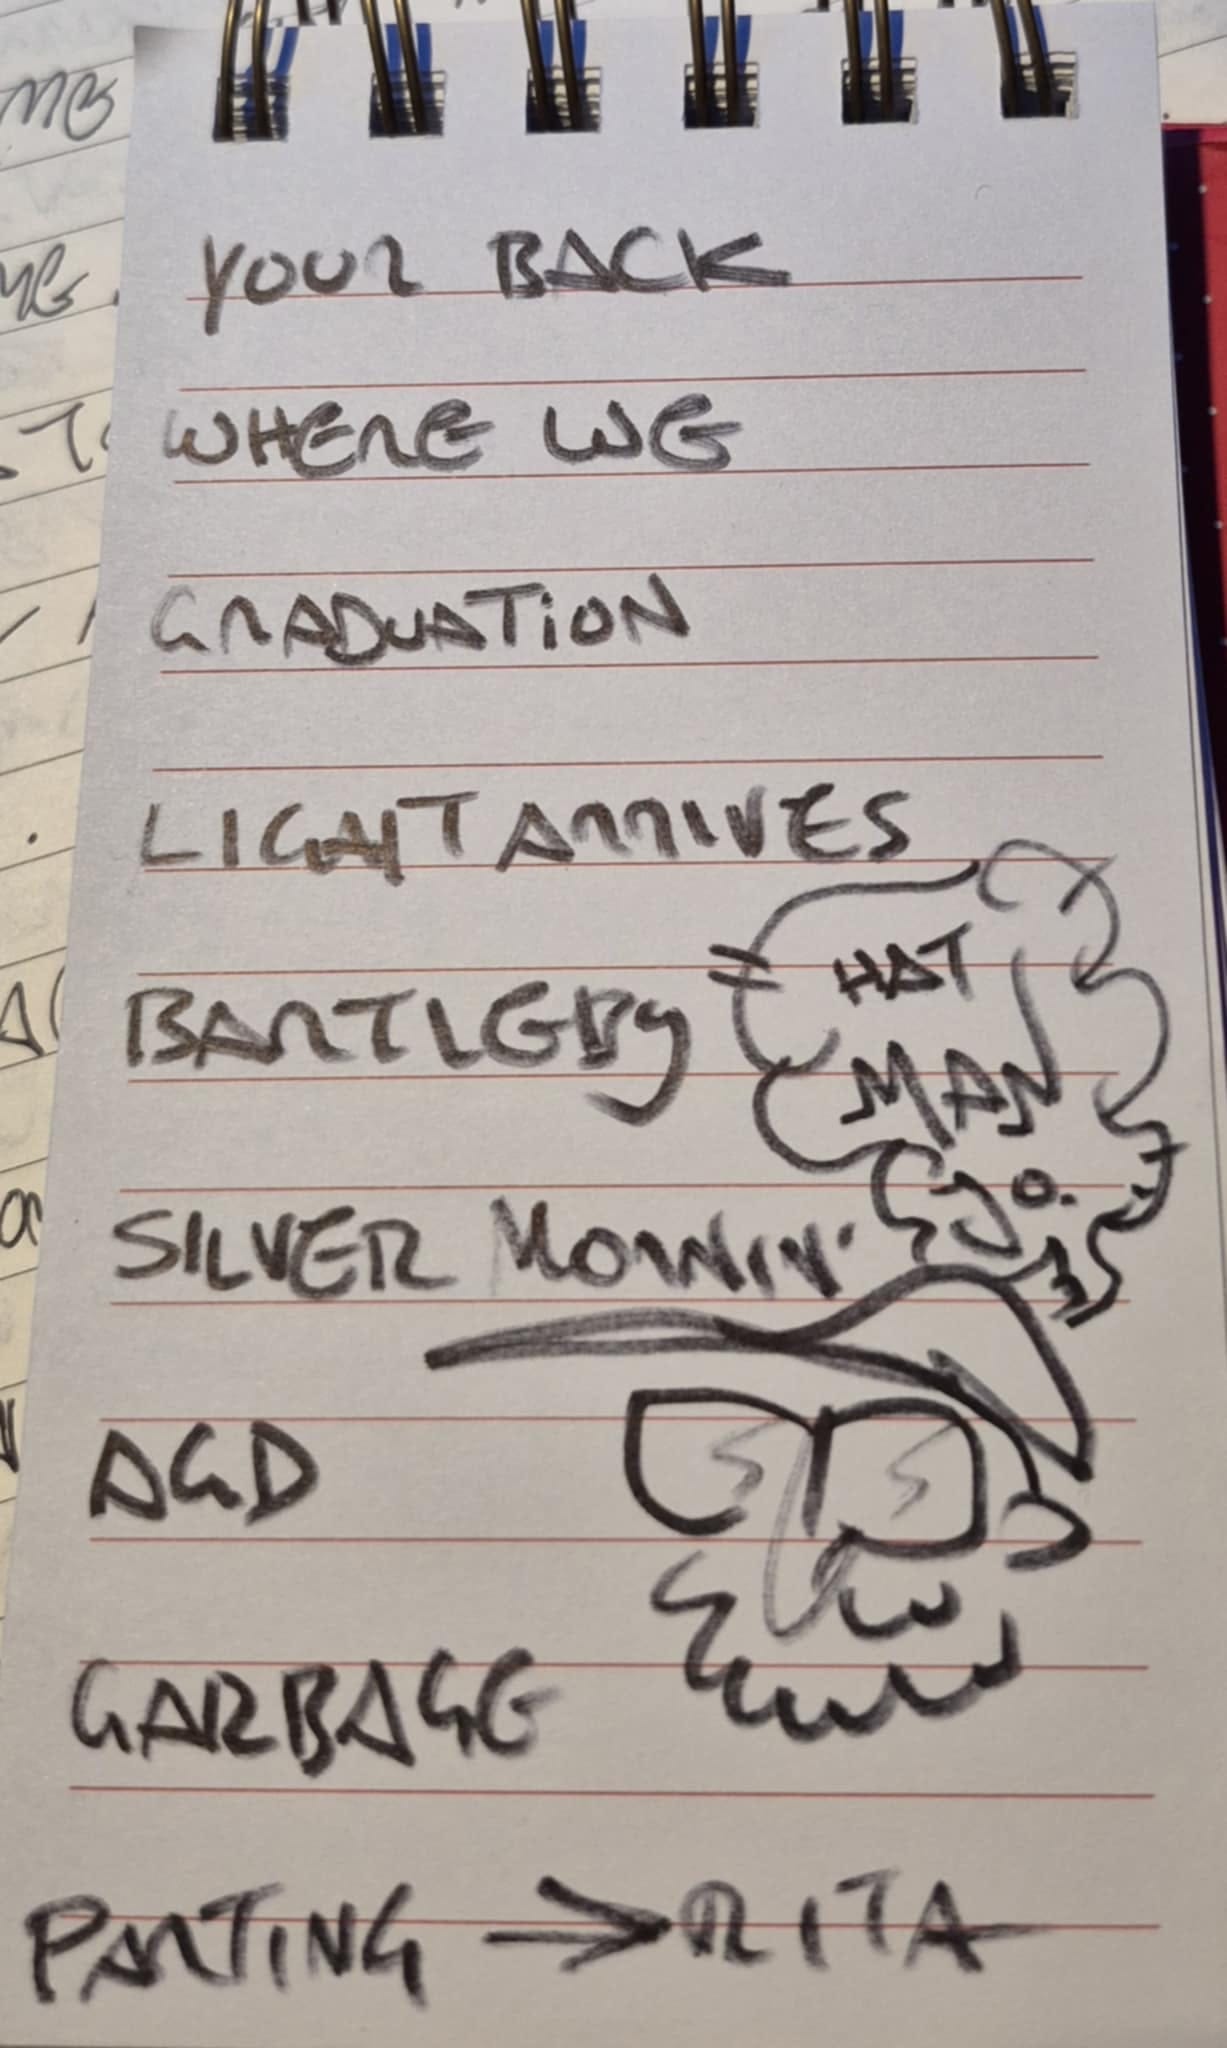 YOUR BACK
WHERE WE
GRADUATION
LIGHT ARRIVES
BARTLEBY
HAT
MAN
JO.
SILVER MORNIN'
AGD
GARBAGE
PARTING → RITA